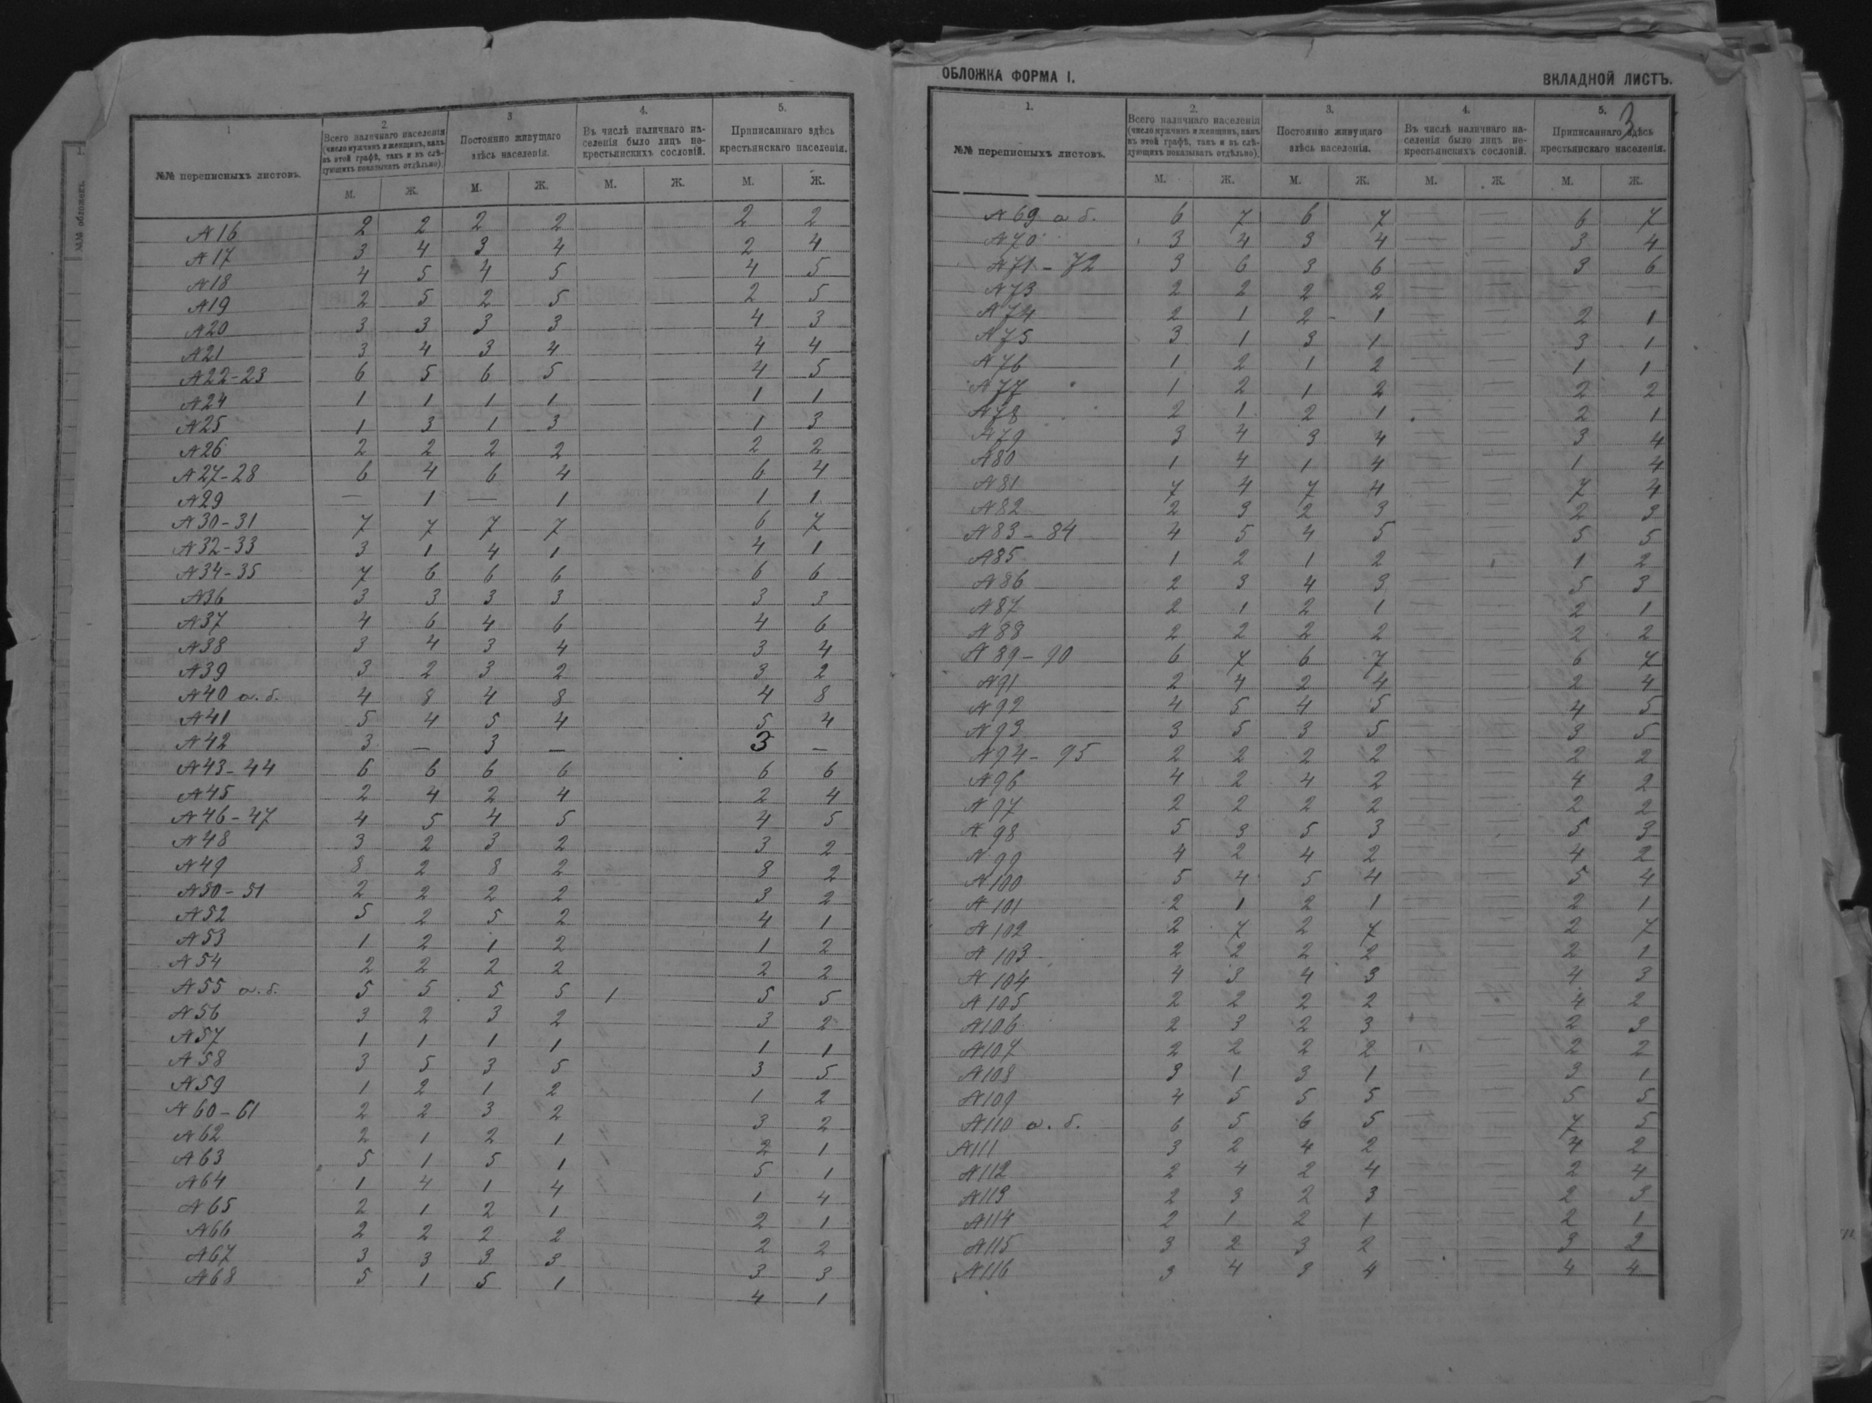 1.
№№ обложекъ.
1
№№ переписныхъ листовъ.
2.
Всего наличнаго населенія (число мужчинъ и женщинъ, какъ въ этой графѣ, такъ и въ слѣдующихъ показывать отдѣльно).
3
Постоянно живущаго здѣсь населенія.
4.
Въ числѣ наличнаго населенія было лицъ некрестьянскихъ сословій.
5.
Приписаннаго здѣсь крестьянскаго населенія.
М. Ж. М. Ж. М. Ж. М. Ж.
№16 2 2 2 2 2 2
№17 3 4 3 4 2 4
№18 4 5 4 5 4 5
№19 2 5 2 5 2 5
№20 3 3 3 3 4 3
№21 3 4 3 4 4 4
№22-23 6 5 6 5 4 5
№24 1 1 1 1 1 1
№25 1 3 1 3 1 3
№26 2 2 2 2 2 2
№27-28 6 4 6 4 6 4
№29 — 1 — 1 1 1
№30-31 7 7 7 7 6 7
№32-33 3 1 4 1 4 1
№34-35 7 6 6 6 6 6
№36 3 3 3 3 3 3
№37 4 6 4 6 4 6
№38 3 4 3 4 3 4
№39 3 2 3 2 3 2
№40 а.б. 4 8 4 8 4 8
№41 5 4 5 4 5 4
№42 3 — 3 — 3 —
№43-44 6 6 6 6 6 6
№45 2 4 2 4 2 4
№46-47 4 5 4 5 4 5
№48 3 2 3 2 3 2
№49 8 2 8 2 8 2
№50-51 2 2 2 2 3 2
№52 5 2 5 2 4 1
№53 1 2 1 2 1 2
№54 2 2 2 2 2 2
№55 а.б. 5 5 5 5 1 5 5
№56 3 2 3 2 3 2
№57 1 1 1 1 1 1
№58 3 5 3 5 3 5
№59 1 2 1 2 1 2
№60-61 2 2 3 2 3 2
№62 2 1 2 1 2 1
№63 5 1 5 1 5 1
№64 1 4 1 4 1 4
№65 2 1 2 1 2 1
№66 2 2 2 2 2 2
№67 3 3 3 3 3 3
№68 5 1 5 1 4 1
ОБЛОЖКА ФОРМА I.
ВКЛАДНОЙ ЛИСТЪ.
3
1.
№№ переписныхъ листовъ.
2.
Всего наличнаго населенія (число мужчинъ и женщинъ, какъ въ этой графѣ, такъ и въ слѣдующихъ показывать отдѣльно).
3.
Постоянно живущаго здѣсь населенія.
4.
Въ числѣ наличнаго населенія было лицъ некрестьянскихъ сословій.
5.
Приписаннаго здѣсь крестьянскаго населенія.
М. Ж. М. Ж. М. Ж. М. Ж.
№69 а б. 6 7 6 7 — — 6 7
№70 3 4 3 4 — — 3 4
№71-72 3 6 3 6 — — 3 6
№73 2 2 2 2 — — — —
№74 2 1 2 1 — — 2 1
№75 3 1 3 1 — — 3 1
№76 1 2 1 2 — — 1 1
№77 1 2 1 2 — — 2 2
№78 2 1 2 1 — — 2 1
№79 3 4 3 4 — — 3 4
№80 1 4 1 4 — — 1 4
№81 7 4 7 4 — — 7 4
№82 2 3 2 3 — — 2 3
№83-84 4 5 4 5 — — 5 5
№85 1 2 1 2 — — 1 2
№86 2 3 4 3 — — 5 3
№87 2 1 2 1 — — 2 1
№88 2 2 2 2 — — 2 2
№89-90 6 7 6 7 — — 6 7
№91 2 4 2 4 — — 2 4
№92 4 5 4 5 — — 4 5
№93 3 5 3 5 — — 3 5
№94-95 2 2 2 2 — — 2 2
№96 4 2 4 2 — — 4 2
№97 2 2 2 2 — — 2 2
№98 5 3 5 3 — — 5 3
№99 4 2 4 2 — — 4 2
№100 5 4 5 4 — — 5 4
№101 2 1 2 1 — — 2 1
№102 2 7 2 7 — — 2 7
№103 2 2 2 2 — — 2 1
№104 4 3 4 3 — — 4 3
№105 2 2 2 2 — — 4 2
№106 2 3 2 3 — — 2 3
№107 2 2 2 2 — — 2 2
№108 3 1 3 1 — — 3 1
№109 4 5 5 5 — — 5 5
№110 а.б. 6 5 6 5 — — 7 5
№111 3 2 4 2 — — 4 2
№112 2 4 2 4 — — 2 4
№113 2 3 2 3 — — 2 3
№114 2 1 2 1 — — 2 1
№115 3 2 3 2 — — 3 2
№116 3 4 3 4 — — 4 4